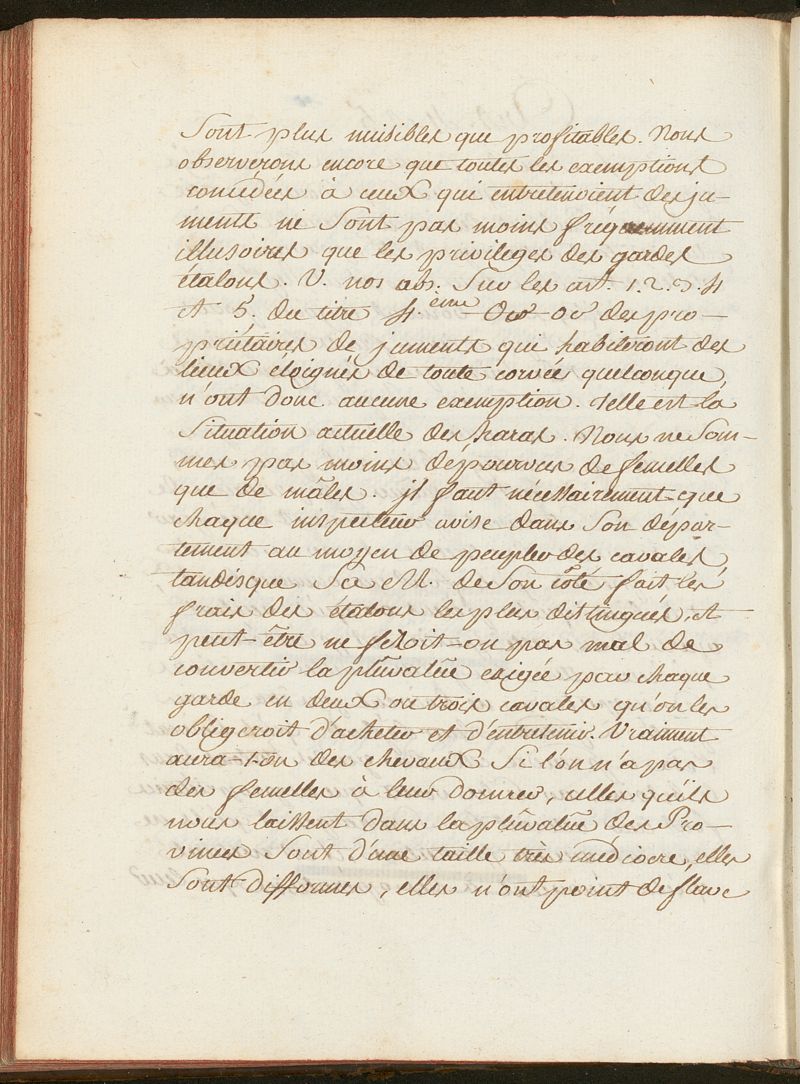 Sont plus nuisibles que profitables. Nous
observerons encore que toutes les exemptions
concédées à ceux qui entretenoient des ju-
ments ne Sont pas moins fréquemment
illusoires que les privileges des gardes
étalons. V. nos obs. Sur les art. 1. 2. 3. 4
et 5. du titre 4.eme Ow ov des pro-
priétaires de juments qui habiteront des
lieux éloignés de toute corvée quelconque,
n'ont donc aucune exemption. telle est la
Situation actuelle des haras. Nous ne Som-
mes pas moins dépourvus de femelles
que de mâles. jl faut nécessairement que
chaque inspecteur avise dans Son dépar-
tement au moyen de peupler des cavales,
tandisque Sa M. de Son côté fait les
frais des étalons les plus distingués, et
peut-être ne feroit-on pas mal de
convertir la plûvalüe exigée par chaque
garde en deux ou trois cavales qu'on les
obligeroit d'acheter et d'entretenir. Vraiment
aura-t-on des chevaux Si l'on n'a pas
des femelles à leur donner, celles qu'ils
nous laissent dans la plûvalüe des Pro-
vinces Sont d'une taille très médiocre, elles
Sont difformes, elles n'ont point de slave